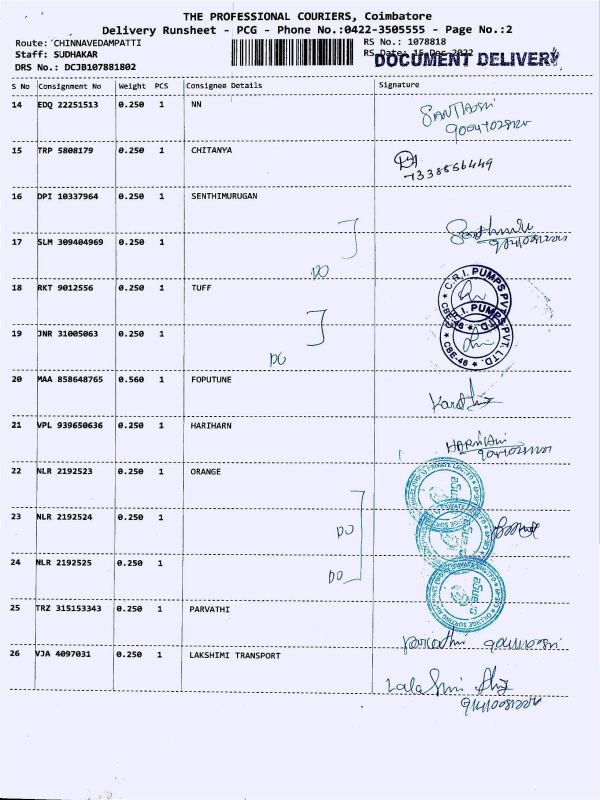 THE PROFESSIONAL COURIERS, Coimbatore
Delivery Runsheet - PCG - Phone No.:0422-3505555 - Page No.:2
Route: CHINNAVEDAMPATTI
RS No.: 1078818
Staff: SUDHAKAR
RS Date: 15-Dec-2022
DOCUMENT DELIVERY
DRS No.: DCJB107881802
S No Consignment No Weight PCS Consignee Details Signature
14 EDQ 22251513 0.250 1 NN
15 TRP 5808179 0.250 1 CHITANYA
7338556449
16 DPI 10337964 0.250 1 SENTHIMURUGAN
17 SLM 309404969 0.250 1
DO
18 RKT 9012556 0.250 1 TUFF
C.R.I. PUMPS PVT. LTD. CBE-46
19 JNR 31005063 0.250 1
C.R.I. PUMPS PVT. LTD. CBE-46
DO
20 MAA 858648765 0.560 1 FOPUTUNE
21 VPL 939650636 0.250 1 HARIHARN
22 NLR 2192523 0.250 1 ORANGE
23 NLR 2192524 0.250 1
DO
24 NLR 2192525 0.250 1
DO
25 TRZ 315153343 0.250 1 PARVATHI
26 VJA 4097031 0.250 1 LAKSHIMI TRANSPORT